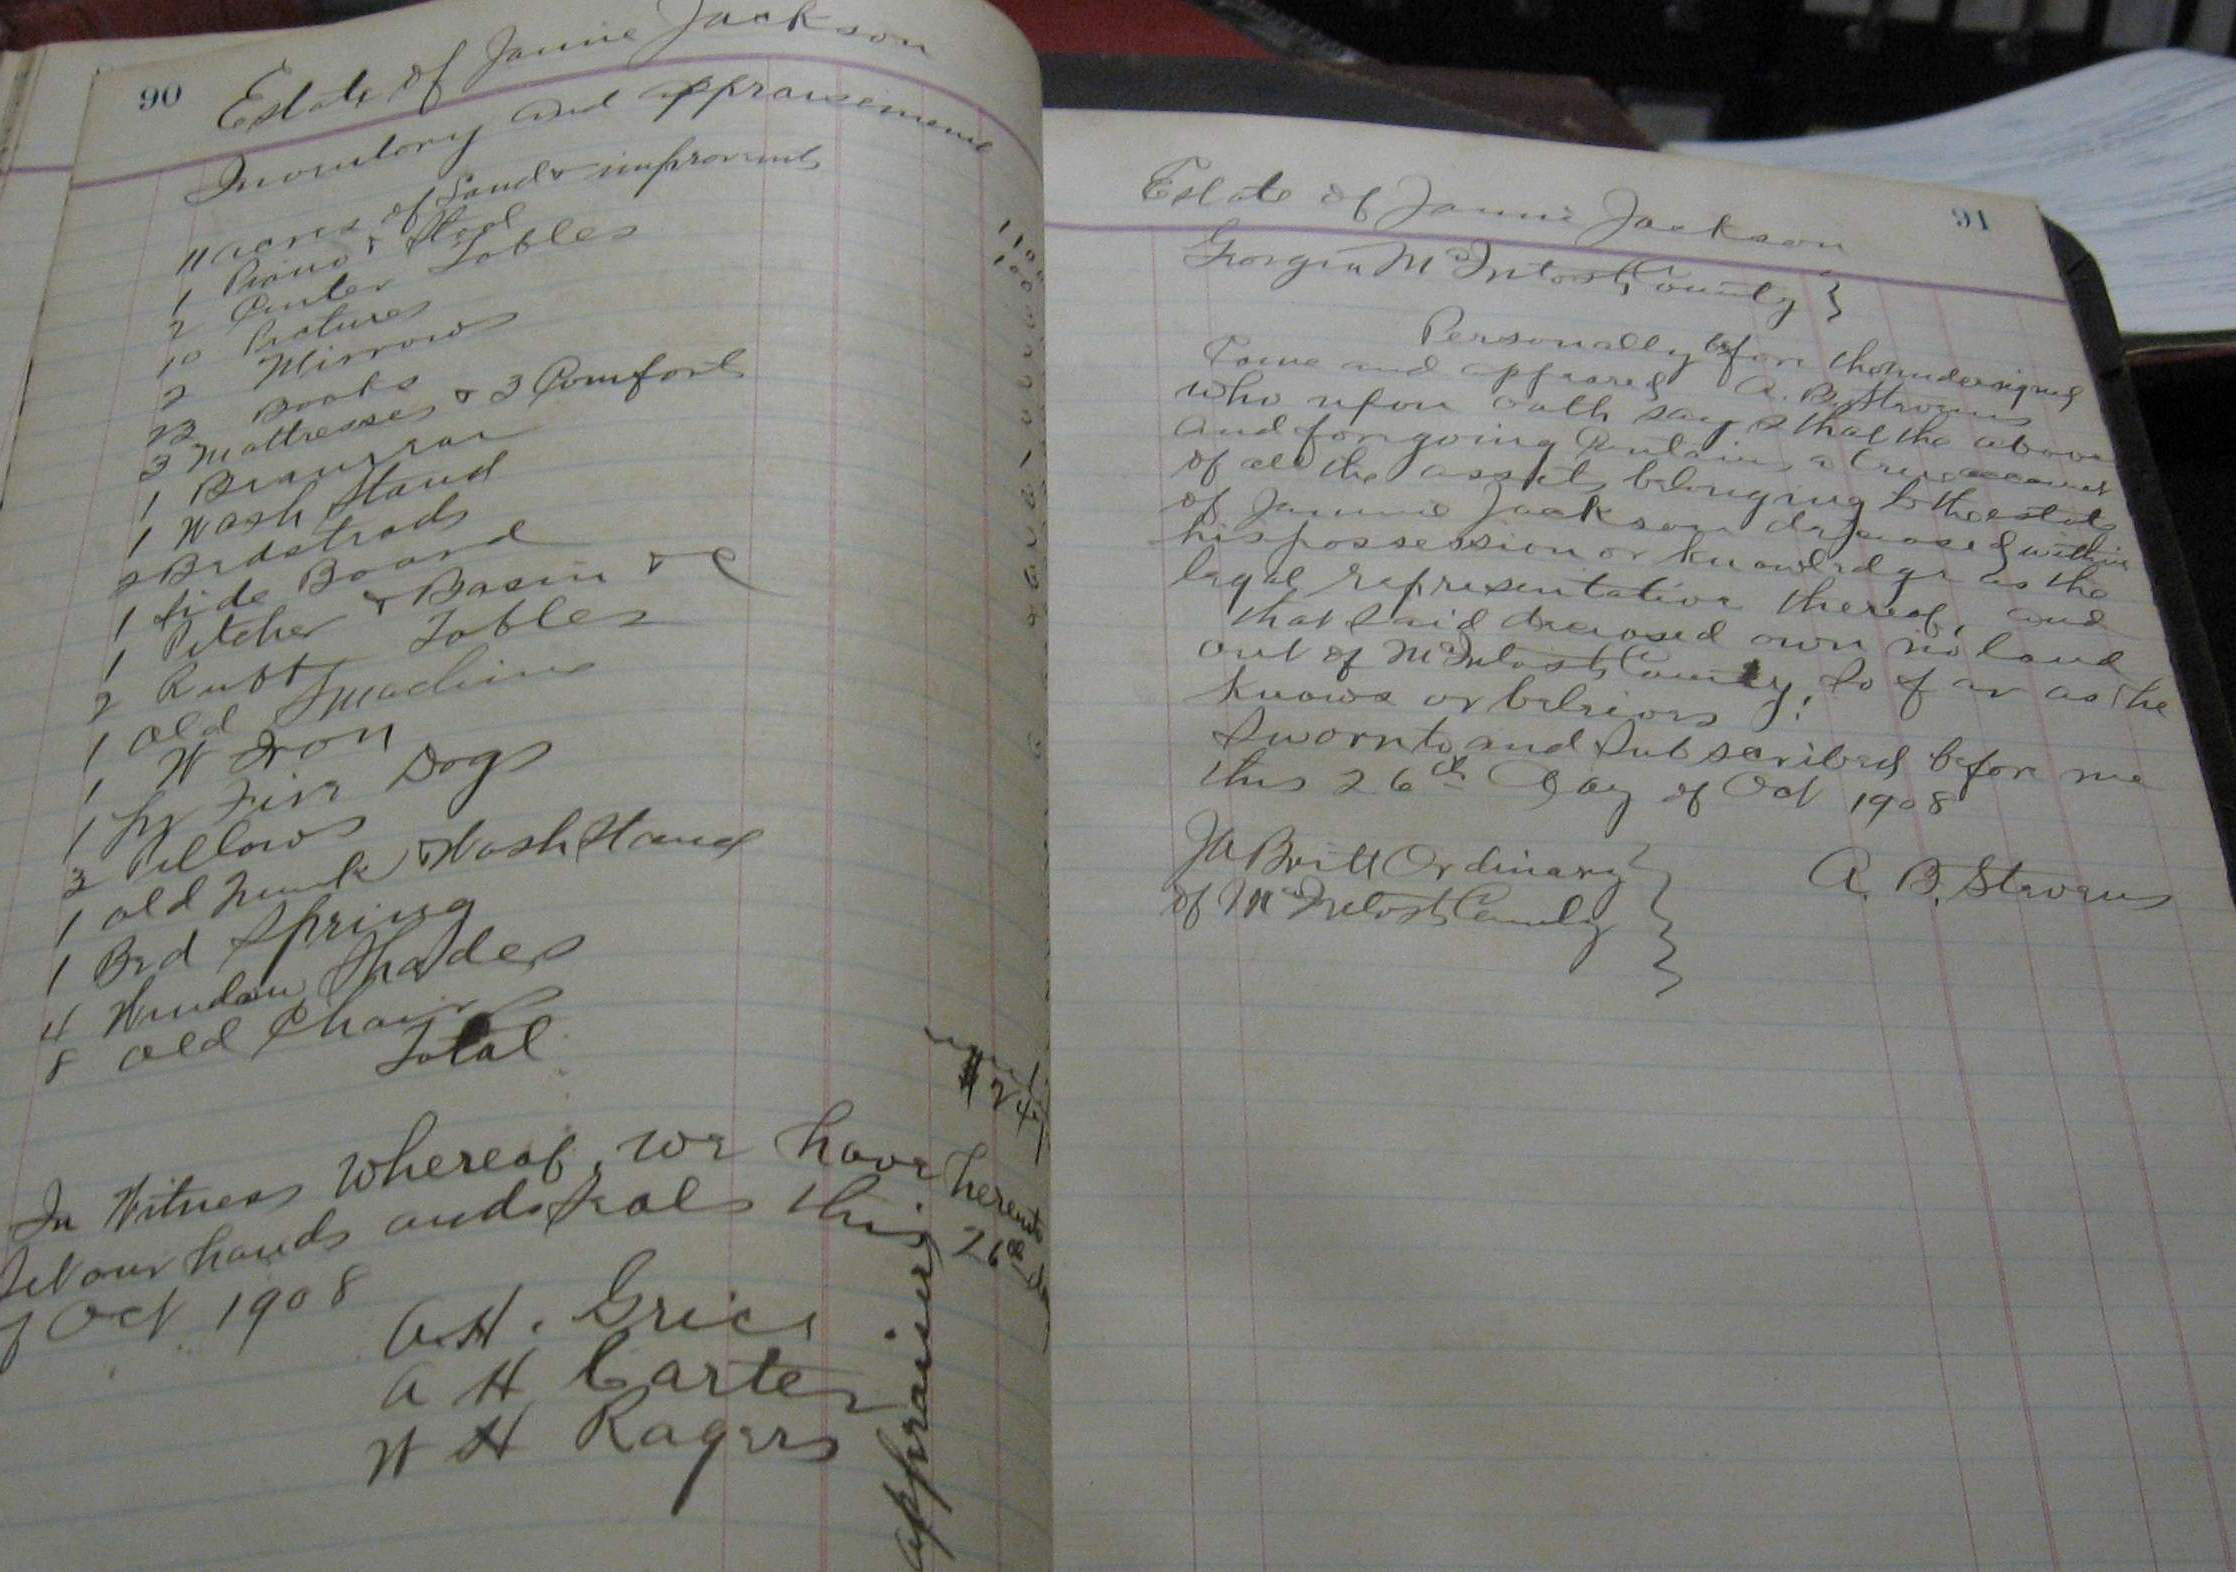 90 Estate of Jannie Jackson
Inventory and appraisement
11 acres of Land & improvmnts
1 Piano & Stool
2 Center Tables
10 Pictures
2 Mirrows
23 Books
3 Mattresses & 3 Comforts
1 Beaurear
1 Wash Stand
2 Bedsteads
1 Side Board
1 Pitcher & Basin & c
2 Tables
1 old Machine
1 W Iron
1 pr Fire Dogs
2 Pillows
1 old Trunk & Wash Stand
1 Bed Spring
4 Window Shades
8 old Chairs
Total
$ 24
In Witness whereof, we have hereunto
set our hands and seals this 26th d
of Oct 1908
A. H. Grice
A H Carter
W H Ragers
appraisers
Estate of Jannie Jackson 91
Georgia McIntosh County }
Personally before the undersigned
Came and appeared A. B. Stevens
who upon oath says that the above
and foregoing Contains a true account
of all the assets belonging to the estate
of Jannie Jackson deceased within
his possession or knowledge as the
legal representative thereof, and
that said deceased own no land
out of McIntosh County, so far as he
knows or believes
Sworn to and Subscribed before me
this 26th Day of Oct 1908
JA Britt Ordinary }
of McIntosh County }
A. B. Stevens